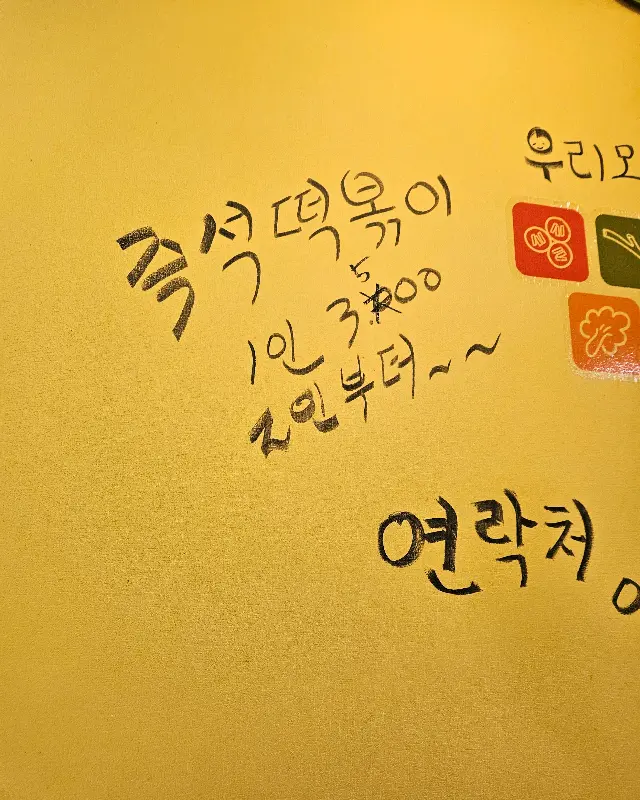 우리모
즉석떡볶이
1인 3.500
2인부터~~
연락처